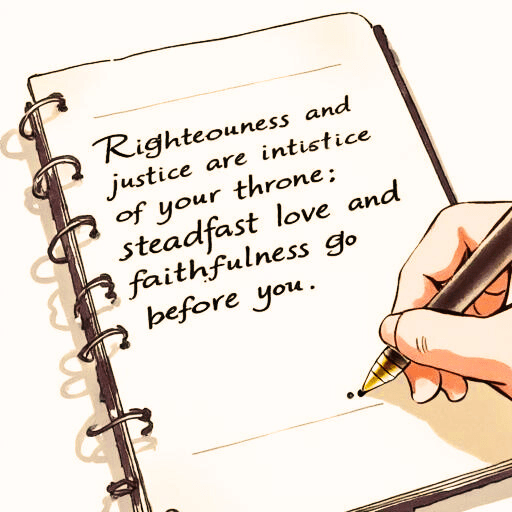 Righteouness and
justice are intistice
of your throne:
steadfast love and
faithfulness go
before you.